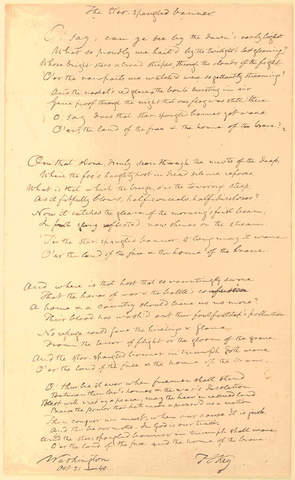 The Star-spangled banner
O! say, can ye see by the dawn's early light
What so proudly we hail'd by the twilight's last gleaming?
Whose bright stars & broad stripes, through the clouds of the fight,
O'er the ramparts we watched were so gallantly streaming?
And the rocket's red glare, the bomb bursting in air
Gave proof through the night that our flag was still there
O! say, does that star-spangled banner yet wave
O'er the land of the free & the home of the brave?
On that shore, dimly seen through the mists of the deep,
Where the foe's haughty host in dread silence reposes
What is that which the breeze, o'er the towering steep
As it fitfully blows, half conceals, half discloses?
Now it catches the gleam of the morning's first beam,
In full glory reflected now shines on the stream
'Tis the star-spangled banner O long may it wave
O'er the land of the free & the home of the brave
And where is that host that so vauntingly swore
That the havoc of war & the battle's confusion
A home & a country should leave us no more?
Their blood has wash'd out their foul footstep's pollution
No refuge could save the hireling & slave
From the terror of flight or the gloom of the grave
And the star-spangled banner in triumph doth wave
O'er the land of the free & the home of the brave
O! thus be it ever when freemen shall stand
Between their lov'd homes & the war's desolation
Blest with vict'ry & peace, may the heav'n rescued land
Praise the power that hath made & preserved us a nation
Then conquer we must, when our cause it is just
And this be our motto In God is our trust
And the star-spangled banner in triumph shall wave
O'er the land of the free and the home of the brave
Washington
Oct 21 - 40
F S Key